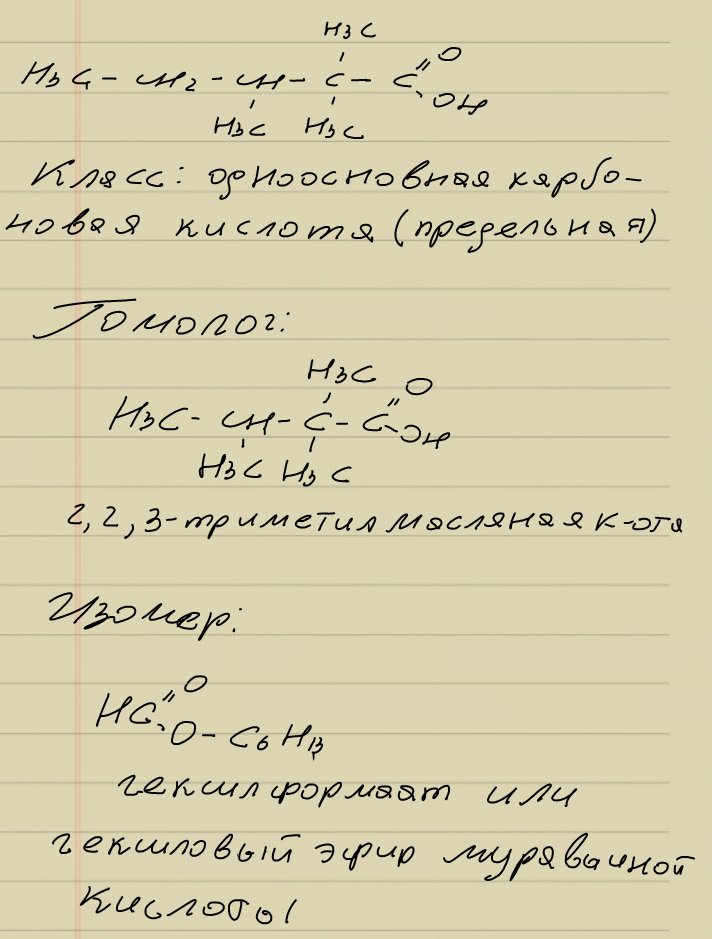 H3C
H3C - CH2 - CH - C - C = O
OH
H3C H3C
Класс: одноосновная карбо-
новая кислота (предельная)
Гомолог:
H3C
O
H3C - CH - C - C = OH
H3C H3C
2, 2, 3-триметилмасляная к-ота
Изомер:
O
HC =
O - C6H13
гексилформаат или
гексиловый эфир муравьиной
кислоты